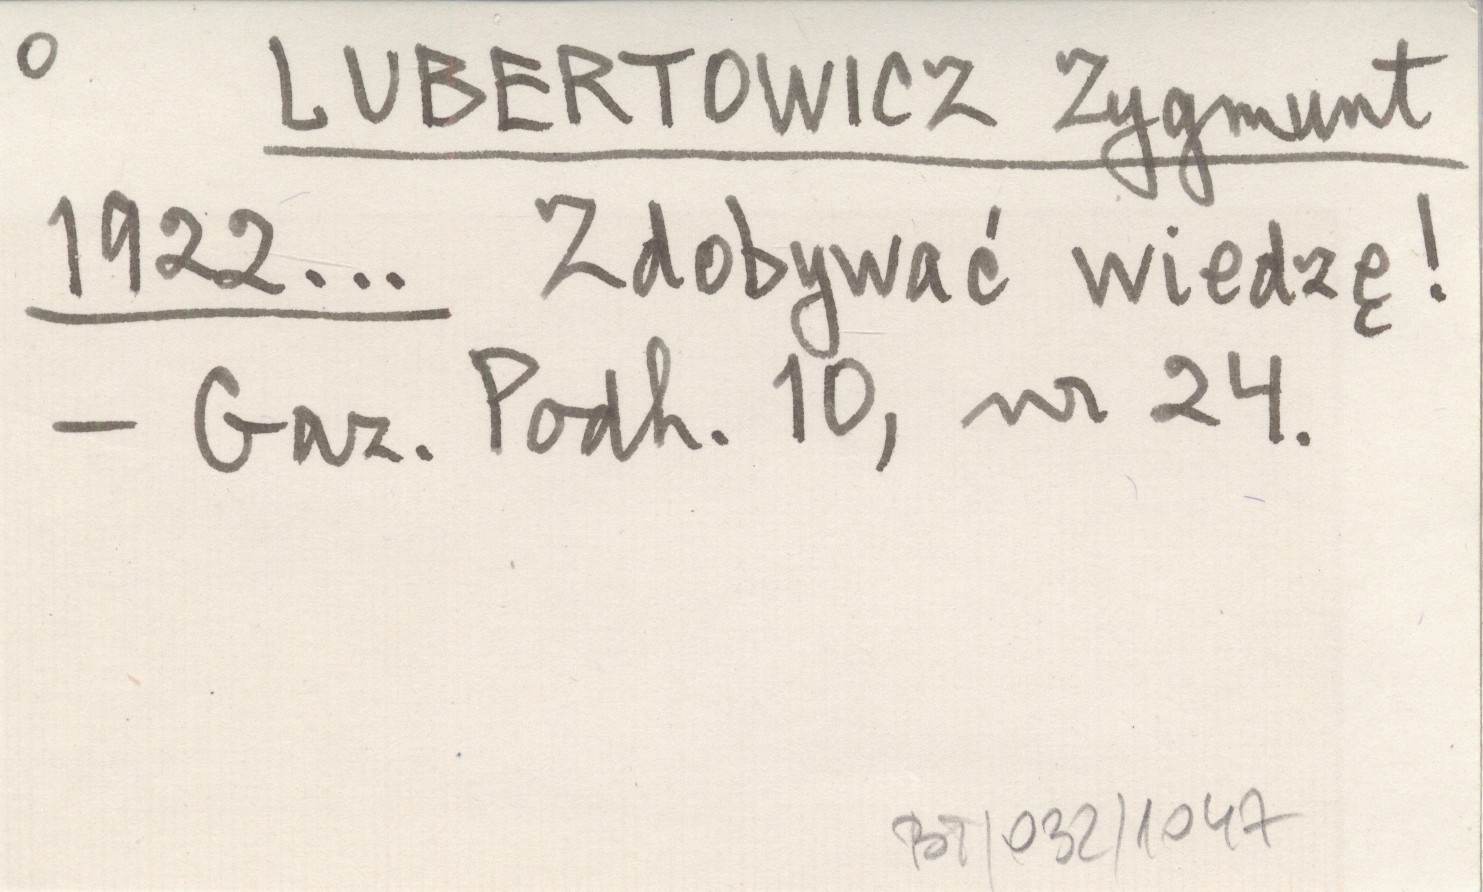 O LUBERTOWICZ Zygmunt
1922... Zdobywać wiedzę!
— Gaz. Podh. 10, nr 24.
BT/032/1047